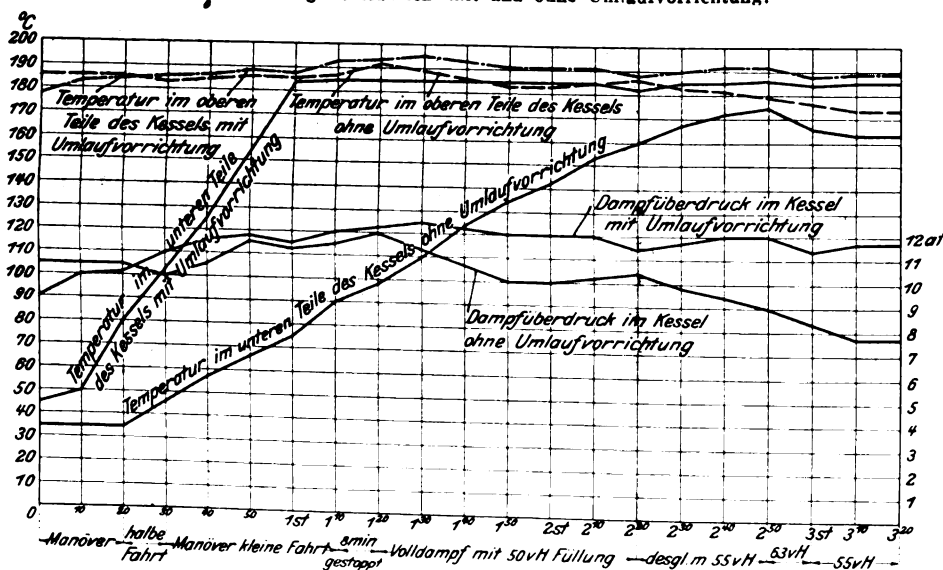 mit und ohne Umlaufvorrichtung.
°C
200
190
180
170
160
150
140
130
120
110
100
90
80
70
60
50
40
30
20
10
0
Temperatur im oberen
Teile des Kessels mit
Umlaufvorrichtung
Temperatur im oberen Teile des Kessels
ohne Umlaufvorrichtung
Temperatur im unteren Teile
des Kessels mit Umlaufvorrichtung
Temperatur im unteren Teile des Kessels ohne Umlaufvorrichtung
Dampfüberdruck im Kessel
mit Umlaufvorrichtung
Dampfüberdruck im Kessel
ohne Umlaufvorrichtung
12 at
11
10
9
8
7
6
5
4
3
2
1
0 10 20 30 40 50 1st 1 10 1 20 1 30 1 40 1 50 2st 2 10 2 20 2 30 2 40 2 50 3st 3 10 3 20
Manöver halbe Fahrt Manöver kleine Fahrt 8min gestoppt Volldampf mit 50vH Füllung desgl. m 55vH 63vH 55vH